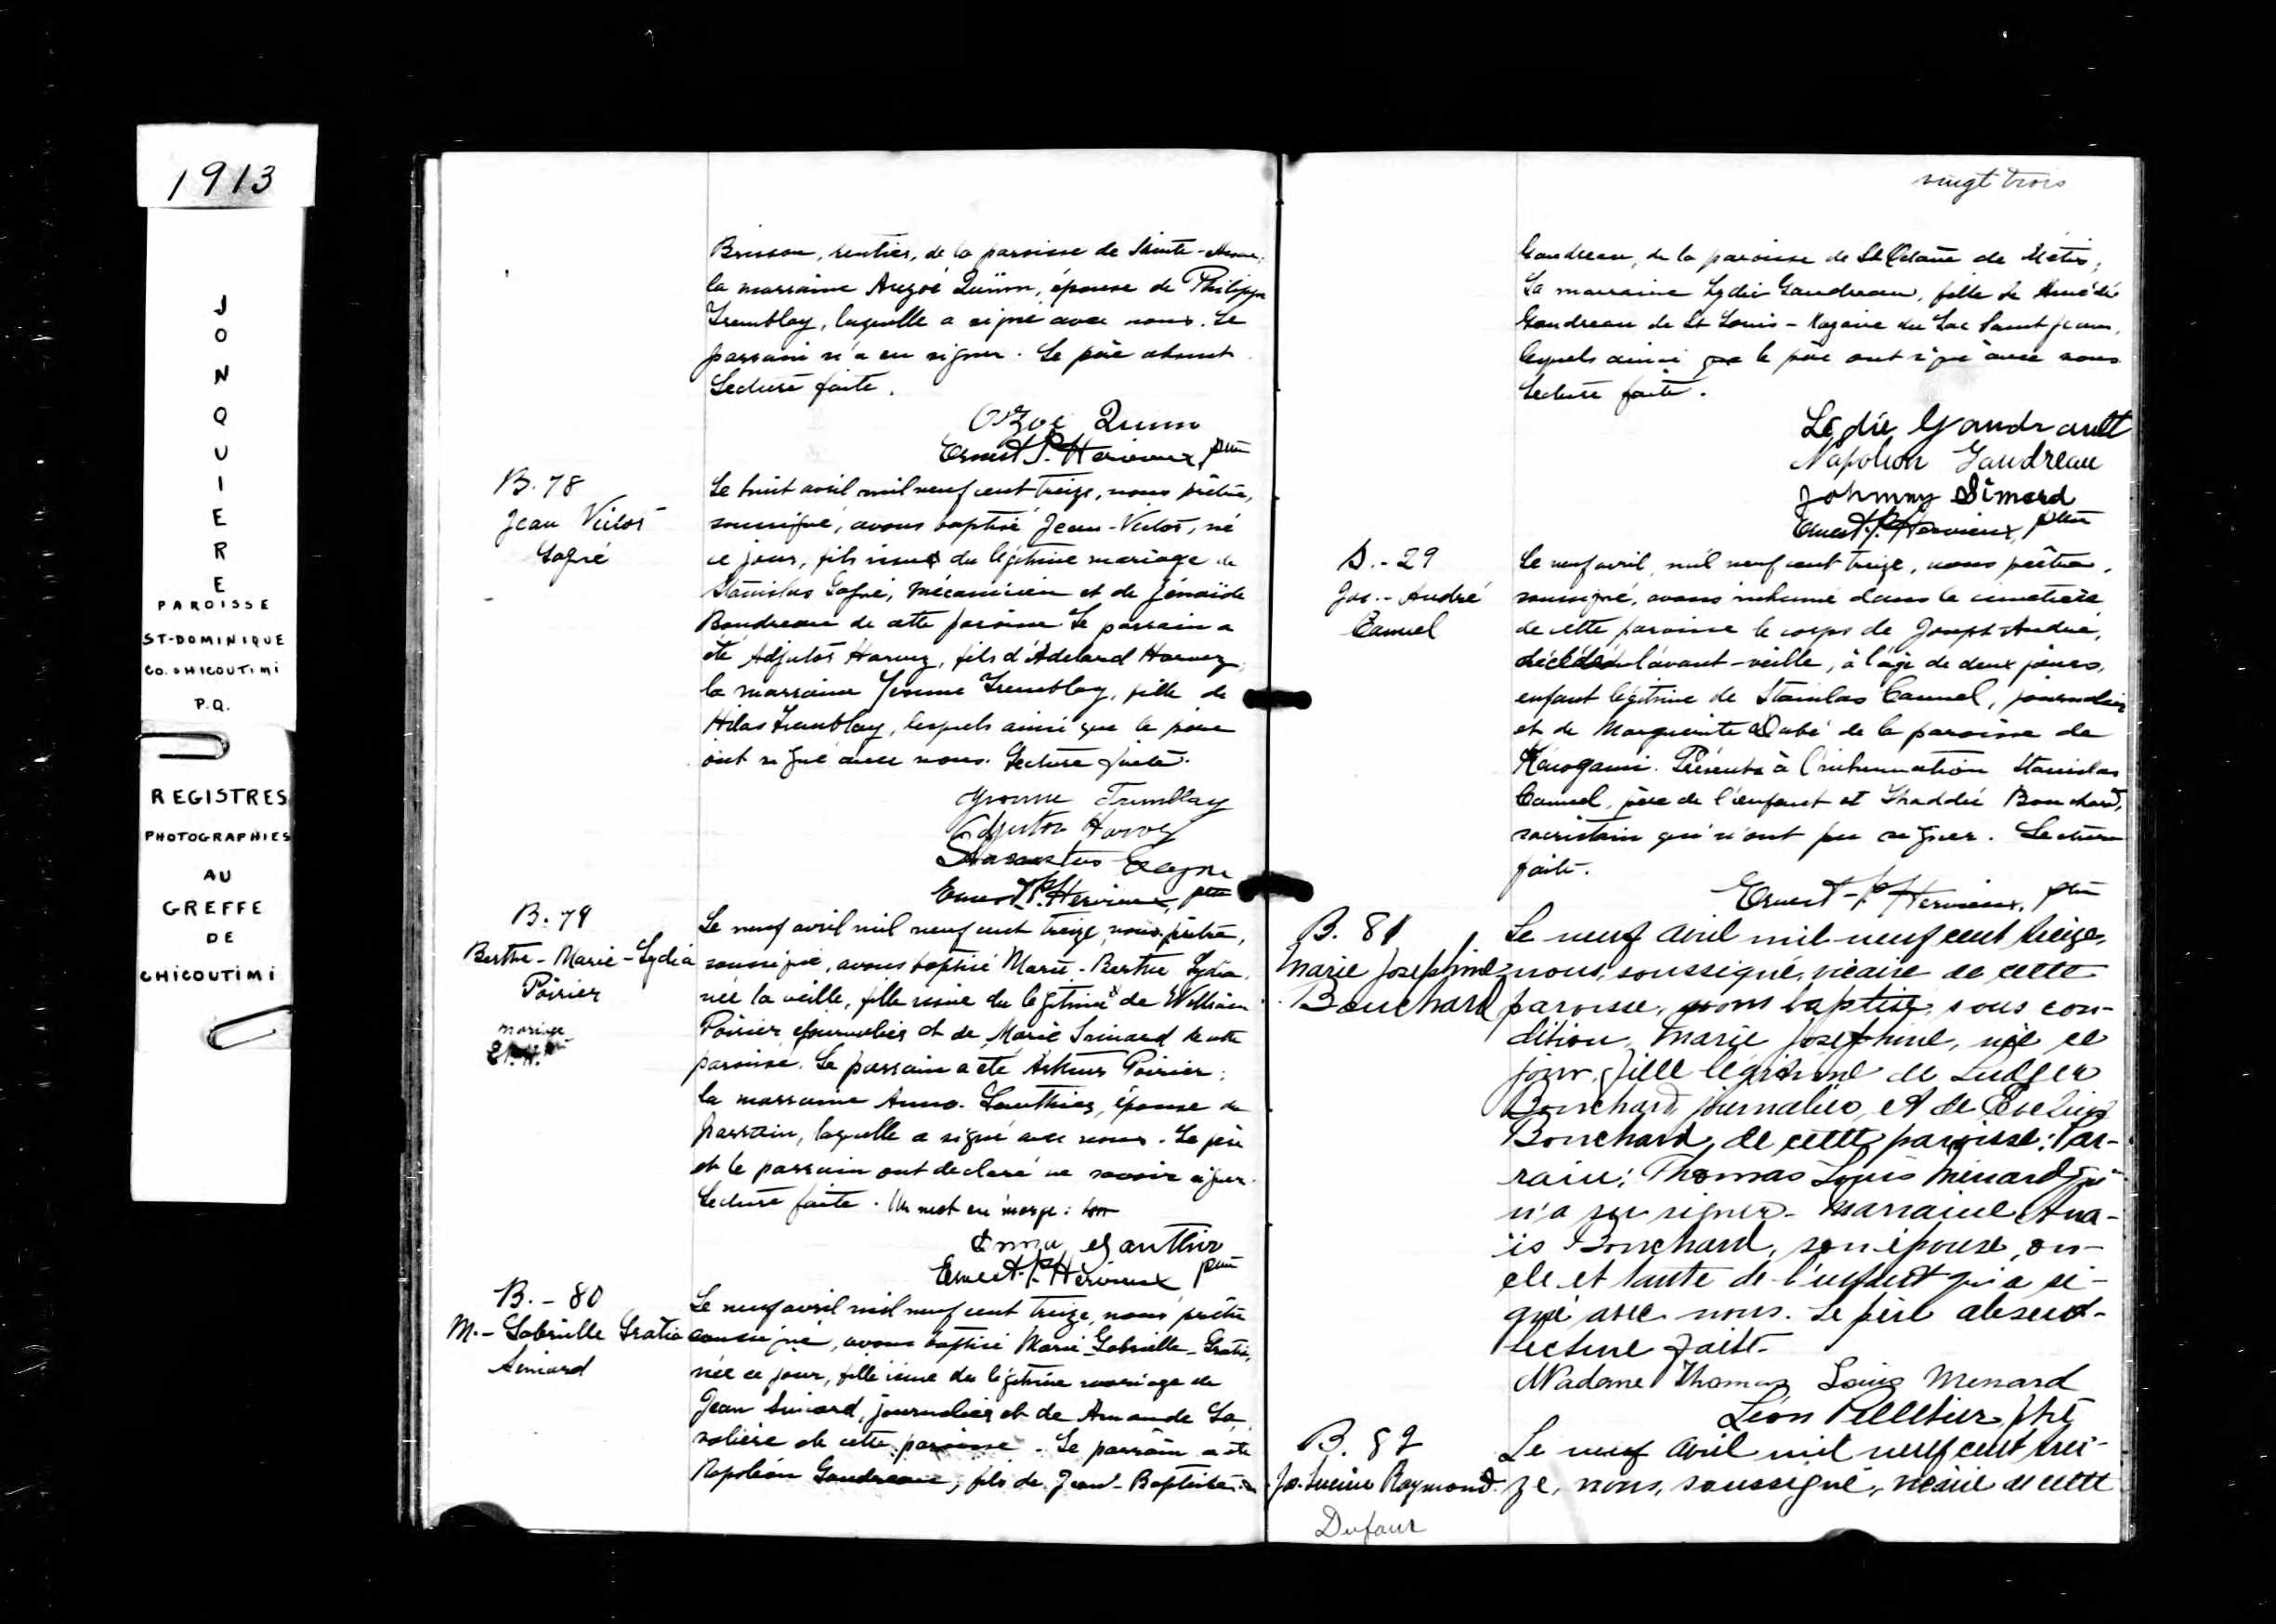 1913
JONQUIERE
PAROISSE
ST-DOMINIQUE
CO. CHICOUTIMI
P.Q.
REGISTRES
PHOTOGRAPHIES
AU
GREFFE
DE
CHICOUTIMI
Brisson, rentier, de la paroisse de Sainte-Anne;
la marraine Auzoé Quinn, épouse de Philippe
Tremblay, laquelle a signé avec nous. Le
parrain n'a su signer. Le père absent.
Lecture faite.
Ozoé Quinn
Ernest P. Hervieux, ptre
B. 78
Jean Victor
Gagné
Le huit avril mil neuf cent treize, nous prêtre,
soussigné, avons baptisé Jean-Victor, né
ce jour, fils issu du légitime mariage de
Stanislas Gagné, mécanicien et de Zénaïde
Boudreau de cette paroisse. Le parrain a
été Adjutor Harvey, fils d'Adelard Harvey,
la marraine Yvonne Tremblay, fille de
Hilas Tremblay, lesquels ainsi que le père
ont signé avec nous. Lecture faite.
Yvonne Tremblay
Adjutor Harvey
Ernest P. Hervieux, ptre
B. 79
Berthe-Marie-Lydia
Poirier
mariage
Le neuf avril mil neuf cent treize, nous prêtre,
soussigné, avons baptisé Marie-Berthe Lydia,
née la veille, fille issue du légitime de William
Poirier journalier et de Marie Simard de cette
paroisse. Le parrain a été Arthur Poirier;
la marraine Anna Gauthier, épouse du
parrain, laquelle a signé avec nous. Le père
et le parrain ont déclaré ne savoir signer.
Lecture faite. Un mot en marge: bon
Anna Gauthier
Ernest P. Hervieux ptre
B.-80
M.-Gabrielle Gratia
Simard
Le neuf avril mil neuf cent treize, nous prêtre
soussigné, avons baptisé Marie-Gabrielle-Gratia,
née ce jour, fille issue du légitime mariage de
Jean Simard, journalier et de Amanda La
volière de cette paroisse. Le parrain a été
Napoléon Gaudreau, fils de Jean-Baptiste
vingt trois
Gaudreau, de la paroisse de St Octave de Métis;
La marraine Lydie Gaudreau, fille de Amédé
Gaudreau de St Louis-Nazaire du Lac Saint Jean,
lesquels ainsi que le père ont signé avec nous
Lecture faite.
Lydie Gaudrault
Napoléon Gaudreau
Johnny Simard
Ernest P. Hervieux, ptre
S.-29
Jos.-André
Canuel
Le neuf avril, mil neuf cent treize, nous prêtre,
soussigné, avons inhumé dans le cimetière
de cette paroisse le corps de Joseph André,
décédé l'avant-veille, à l'âge de deux jours,
enfant légitime de Stanislas Canuel, journalier
et de Marguerite Dubé de la paroisse de
Kénogami. Présents à l'inhumation Stanislas
Canuel, père de l'enfant et Thaddée Bouchard,
sacristain qui n'ont pu signer. Lecture
faite.
Ernest P. Hervieux, ptre
B. 81
Marie Josephine
Bouchard
Le neuf avril mil neuf cent treize,
nous, soussigné, vicaire de cette
paroisse, avons baptisé, sous con-
dition, Marie Josephine, née ce
jour, fille légitime de Ludger
Bouchard journalier, et de Evelina
Bouchard, de cette paroisse: Par-
rain: Thomas Louis Menard qui
n'a su signer. Marraine Ana-
ïs Bouchard, son épouse, on-
cle et tante de l'enfant qui a si-
gné avec nous. Le père absent-
lecture faite-
Madame Thomas Louis Menard
Léon Pelletier, ptre
B. 82
Jos. Lucien Raymond
Dufour
Le neuf avril mil neuf cent trei-
ze, nous, soussigné, vicaire de cette